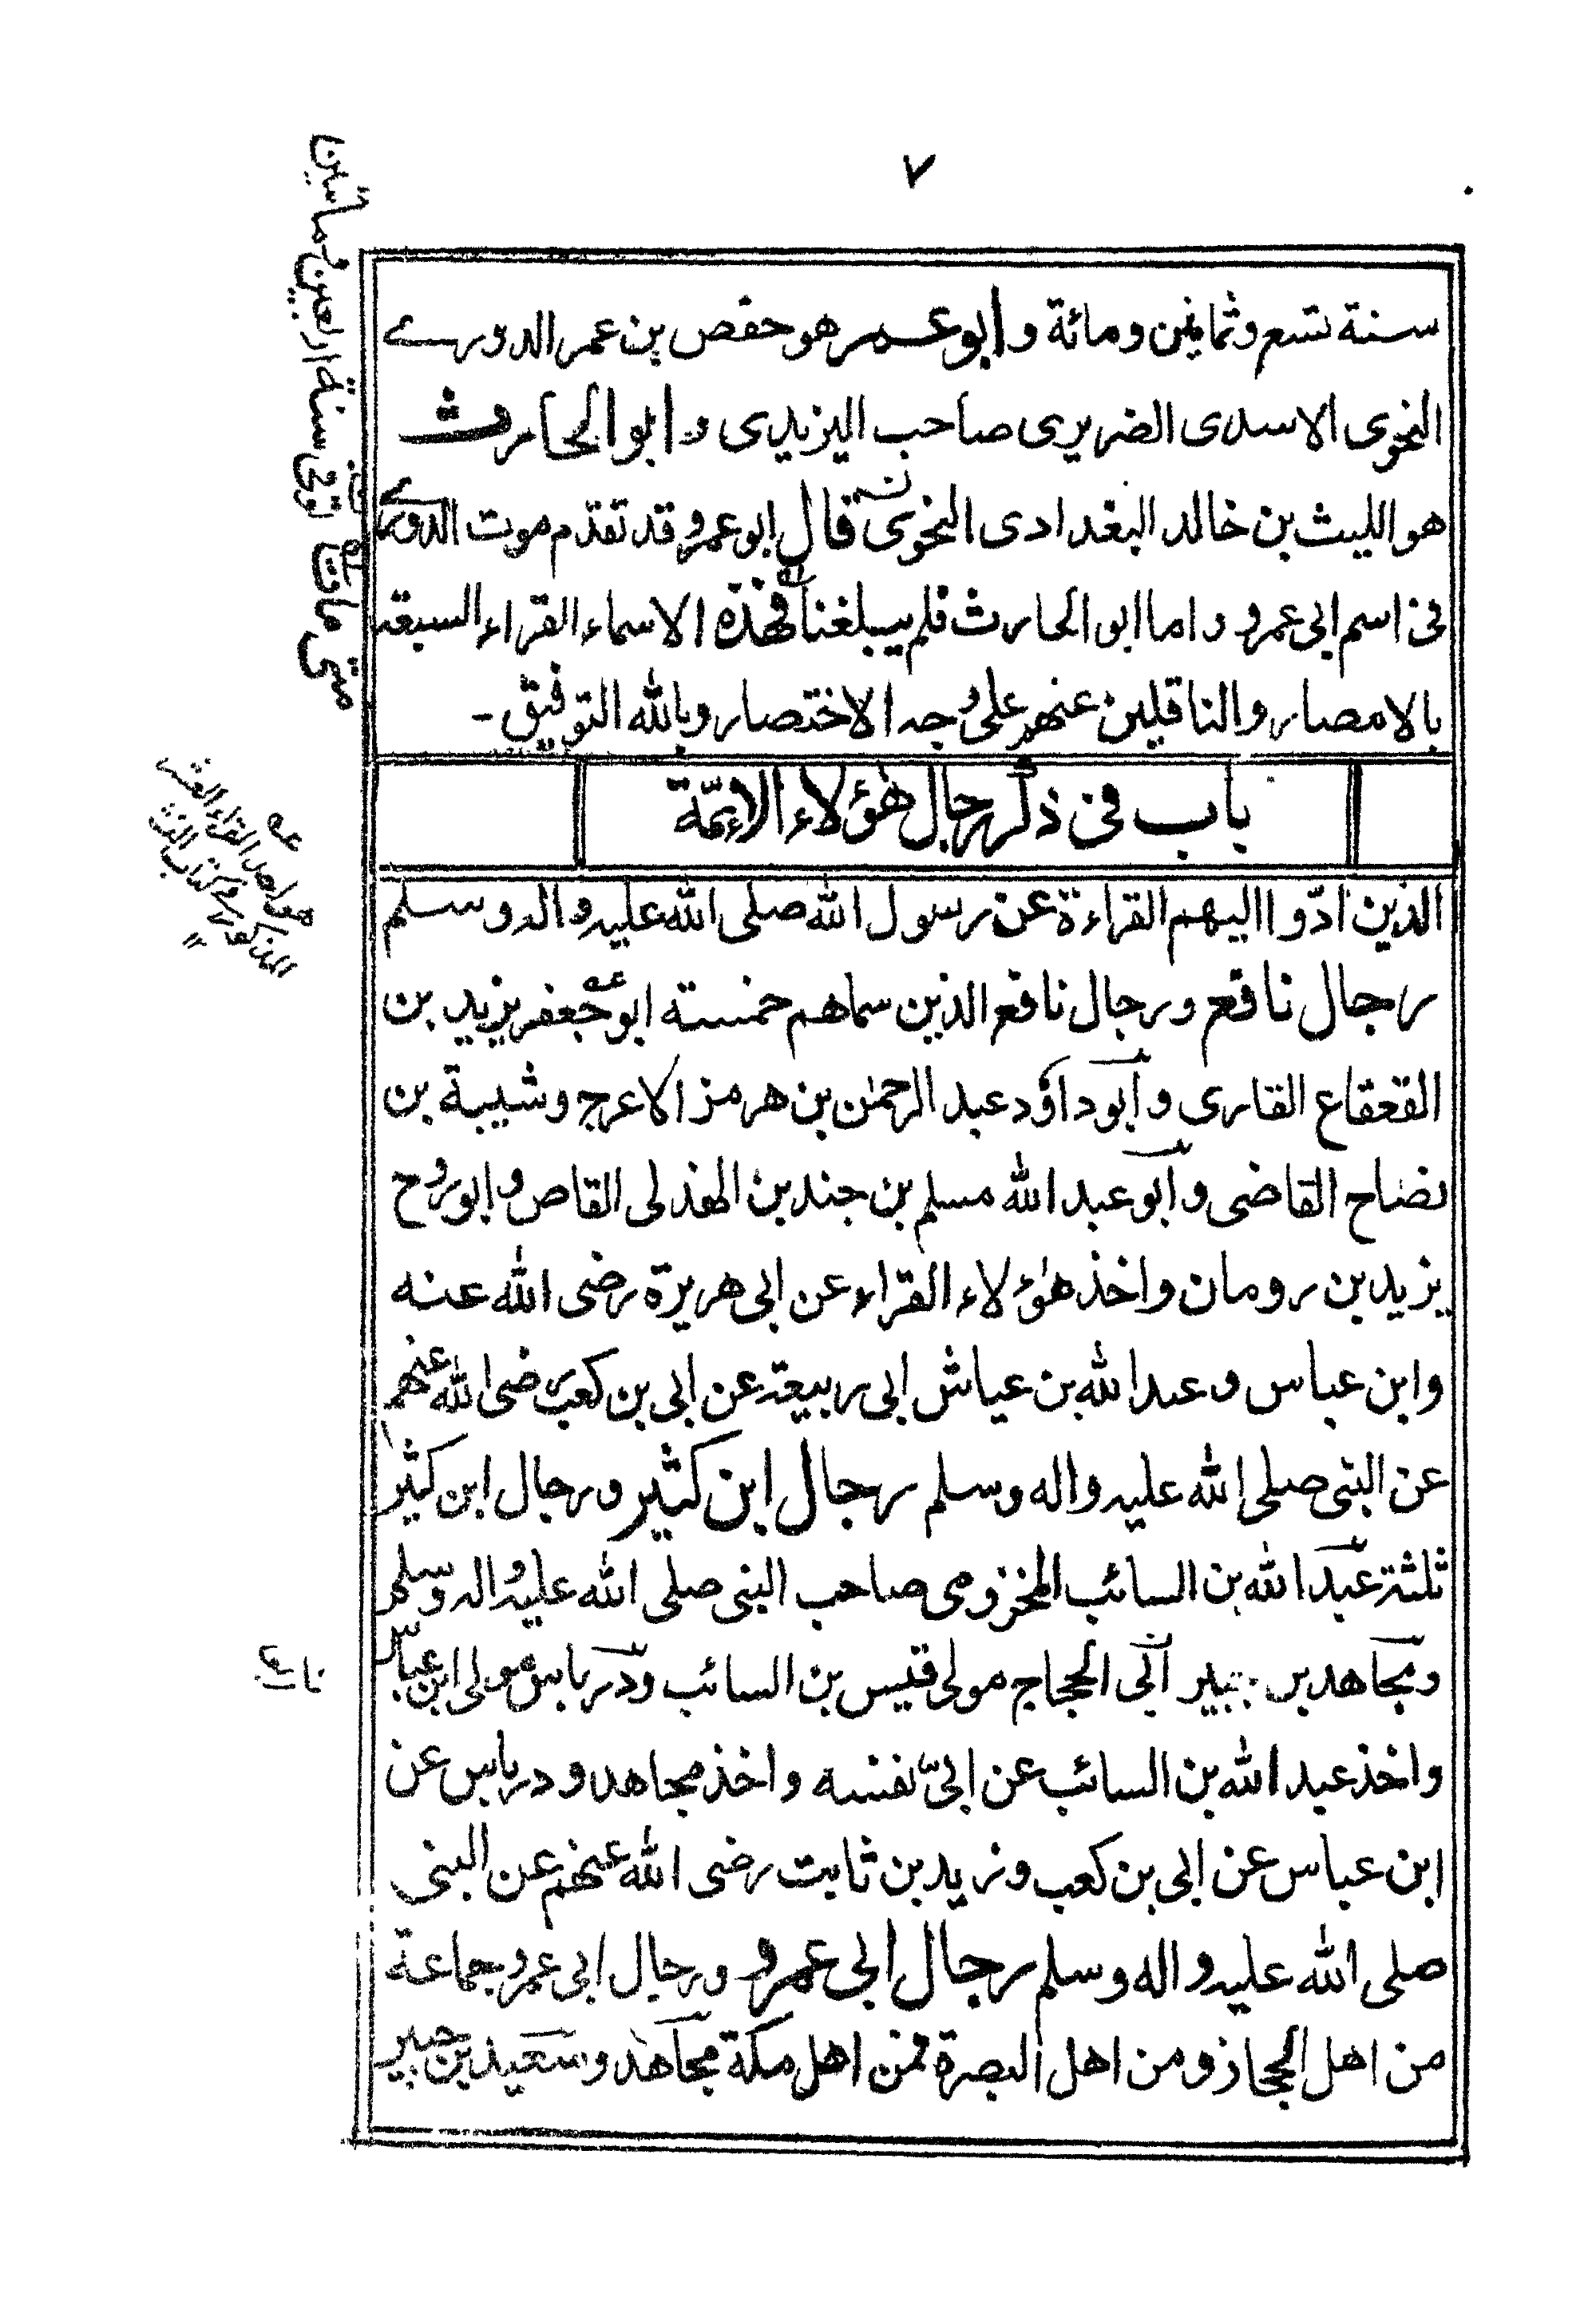 ٧
سنة تسع وثمانين ومائة وابو عمر هو حفص بن عمر الدوري
النحوى الاسدى الضريرى صاحب اليزيدى وابو الحارث
هو الليث بن خالد البغدادى النحوى قال ابو عمرو قد تقدم موت الدوري
فى اسم ابى عمرو واما ابو الحارث فلم يبلغنا فهذه الاسماء القراء السبعة
بالامصار والناقلين عنهم على وجه الاختصار وبالله التوفيق -
باب فى ذكر رجال هٰؤلاء الائمّة
الذين ادّوا اليهم القراءة عن رسول الله صلى الله عليه واله وسلم
رجال نافع ورجال نافع الذين سماهم خمسة ابو جعفر يزيد بن
القعقاع القارى وابو داؤد عبد الرحمٰن بن هرمز الاعرج وشيبة بن
نصاح القاضى وابو عبد الله مسلم بن جندب الهذلى القاص وابو روح
يزيد بن رومان واخذ هٰؤلاء القراء عن ابى هريرة رضى الله عنه
وابن عباس وعبد الله بن عياش ابى ربيعة عن ابى بن كعب رضى الله عنهم
عن النبى صلى الله عليه واله وسلم رجال ابن كثير ورجال ابن كثير
ثلثة عبد الله بن السائب المخزومى صاحب النبى صلى الله عليه واله وسلم
ومجاهد بن جبير ابى الحجاج مولى قيس بن السائب ودرباس مولى ابن عباس
واخذ عبد الله بن السائب عن ابىّ نفسه واخذ مجاهد ودرباس عن
ابن عباس عن ابى بن كعب وزيد بن ثابت رضى الله عنهم عن النبى
صلى الله عليه واله وسلم رجال ابى عمرو ورجال ابى عمرو جماعة
من اهل الحجاز ومن اهل البصرة فمن اهل مكة مجاهد وسعيد بن جبير
عه متى مات توفى سنة اربعين ومأتين
عه هو احد القراء العشر
المذكور فى كتاب النشر